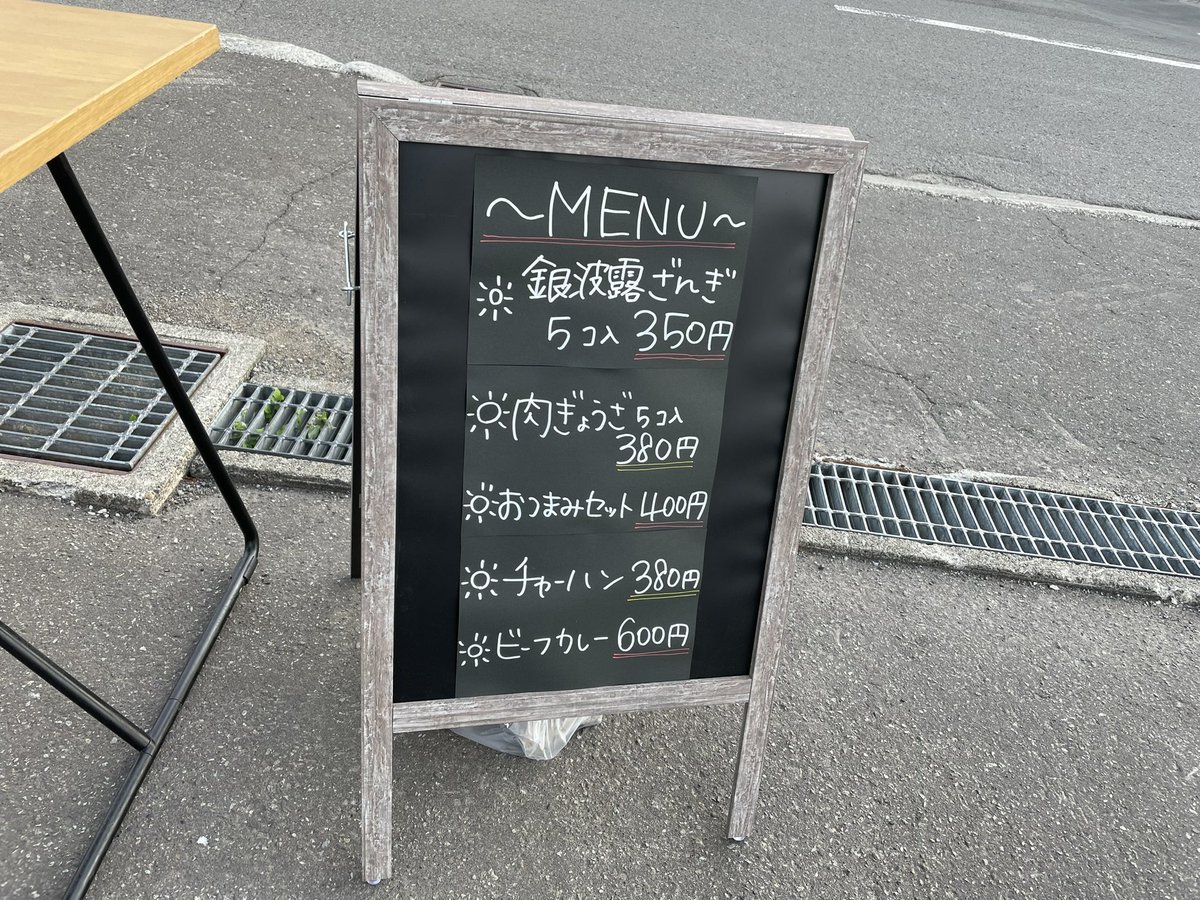 〜MENU〜
銀波露ざんぎ
5コ入 350円
肉ぎょうざ 5コ入
380円
おつまみセット 400円
チャーハン 380円
ビーフカレー 600円